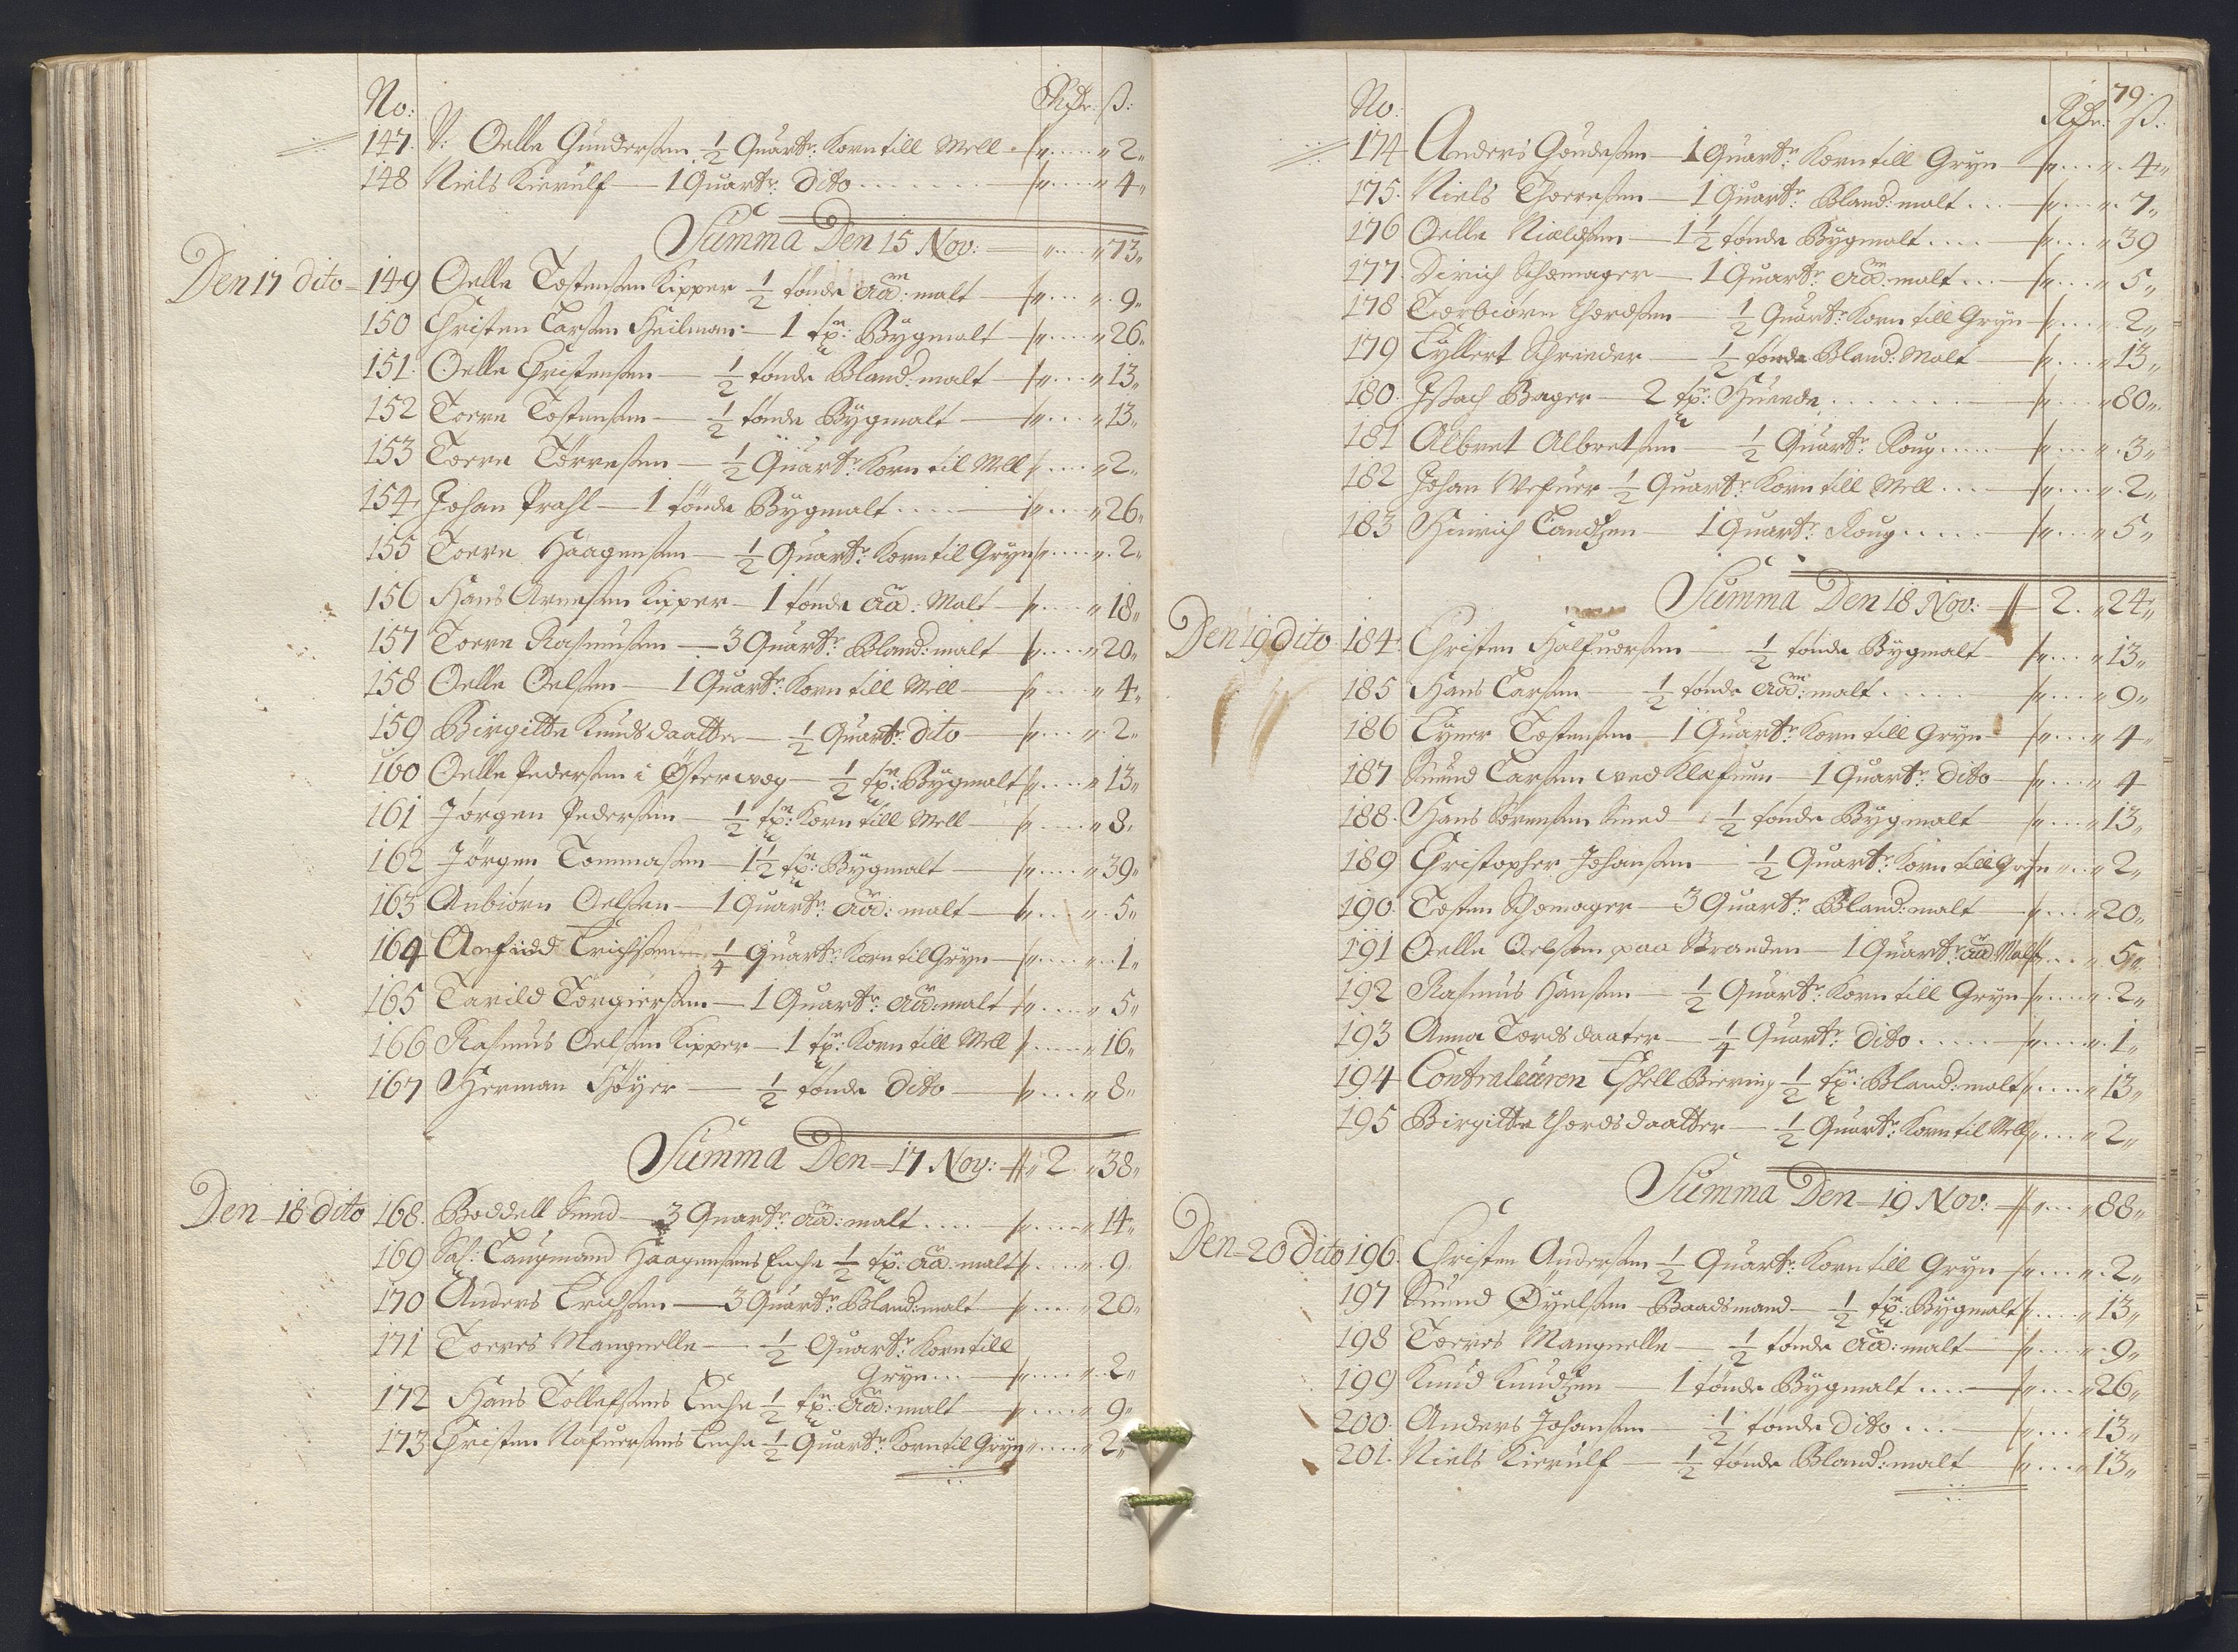 No: Rdr: ß:
147. S: Oelle Gundersen ½ Quartr: Korn till Mell „ „ 2„
148 Niels Kierulf — 1 Quartr: Dito „ „ 4„
Summa Den 15 Nov: „ „ 73„
Den 17 dito 149 Oelle Tostensen Kipper ½ tönde aad: malt „ „ 9„
150 Christen Larsen Heilman — 1 tn: Bÿgmalt „ „ 26„
151. Oelle Christensen — ½ tönde Bland: malt „ „ 13„
152 Toere Tostensen — ½ tönde Bÿgmalt „ „ 13„
153 Toere Törresen — ½ Quartr: Korn til Mell „ „ 2„
154 Johan Prahl — 1 tönde Bÿgmalt „ „ 26„
155 Toere Haagensen — ½ Quartr: Korn til Grÿn „ „ 2„
156 Hans Arnesen Kipper — 1 tönde aad: Malt „ „ 18„
157 Toere Rasmusen — 3 Quartr: Bland: malt „ „ 20„
158 Oelle Oelsen — 1 Quartr: Korn till Mell „ „ 4„
159 Birgitte Knudsdaatter — ½ Quartr: dito „ „ 2„
160 Oelle Pedersen i Österwog — ½ tn: Bÿgmalt „ „ 13„
161 Jørgen Pedersen — ½ tn: Korn till Mell „ „ 8„
162 Jörgen Tommasen — 1½ tn: Bÿgmalt „ „ 39„
163 Anbiörn Oelsen — 1 Quartr: aad: malt „ „ 5„
164 Anfind Erichsen ¼ Quartr: Korn til Grÿn „ „ 1„
165 Tarild Torgiersen — 1 Quartr: aad: malt „ „ 5„
166 Rasmus Oelsen Kipper — 1 tn: Korn till Mell „ „ 16„
167 Herman Höÿer — ½ tönde Dito „ „ 8„
Summa Den 17 Nov: „ 2 „ 38„
Den 18 dito 168. Boddell Smed — 3 Quartr: aad: malt „ „ 14„
169 Sal: Laugmand Haagensens Enche ½ tn: aad: malt „ „ 9„
170 Anders Erichsen — 3 Quartr: Bland: malt „ „ 20„
171 Torres Mangnelle — ½ Quartr: Korn till
Grÿn „ „ 2„
172 Hans Tollefsens Enche ½ tn: aad: malt „ „ 9„
173 Christen Nafuersens Enche ½ Quartr: Korn til Grÿn „ „ 2„
79.
No: Rdr: ß:
174 Anders Goudesen — 1 Quartr: Korn till Grÿn „ „ 4„
175. Niels Thorresen — 1 Quartr: Bland: malt „ „ 7„
176 Oelle Nielssen — 1½ tönde Bÿgmalt „ „ 39
177. Dirich Schomager — 1 Quartr: aad: malt „ „ 5„
178 Torbiörn Thordsen — ½ Quartr: Korn till Grÿn „ „ 2„
179 Eÿllert Schrieder — ½ tönde Bland: Malt „ „ 13„
180. Issach Bager — 2 tr: Huede „ „ 80„
181 Albret Albretsen ½ Quartr: Roug „ „ 3„
182 Johan Wefuer ½ Quartr: Korn till Mell „ „ 2„
183 HinrichЛандsen — 1 Quartr: Roug „ „ 5„
Summa Den 18 Nov: 2. „ 24„
Den 19 dito 184. Christen Halfuorsen — ½ tönde Bÿgmalt „ „ 13„
185 Hans Larsen — ½ tönde aad: malt „ „ 9„
186 Eÿner Tostensen — 1 Quartr: Korn till Grÿn „ „ 4„
187 Suend Larsen wed Klefuen — 1 Quartr: dito „ „ 4
188. Hans Sörensen Smed ½ tönde Bÿgmalt „ „ 13„
189 Christopher Johansen — ½ Quartr: Korn till Grÿn „ „ 2„
190. Tosten Schomager — 3 Quartr: Bland: malt „ „ 20„
191 Oelle Oelsen paa Stranden — 1 Quartr: aad: Malt „ „ 5„
192 Rasmus Hansen — ½ Quartr: Korn till Grÿn „ „ 2„
193 Anna Tordsdaater — ¼ Quartr: dito „ „ 1„
194 Contraleuren Eskell Biering ½ tn: Bland: malt „ „ 13„
195 Birgitte Thordsdaatter — ½ Quartr: Korn til Mell „ „ 2„
Summa Den 19 Nov: „ „ 88„
Den 20 dito 196. Christen Andersen ½ Quartr: Korn till Grÿn „ „ 2„
197 Suend Öÿelsen Baadsmand — ½ tn: Bÿgmalt „ „ 13„
198 Torres Mangnelle — ½ tönde aad: malt „ „ 9„
199 Knud Knudsen — 1 tönde Bÿgmalt „ „ 26„
200. Anders Johansen — ½ tönde dito „ „ 13„
201. Niels Kierulf — ½ tönde Bland: malt „ „ 13„